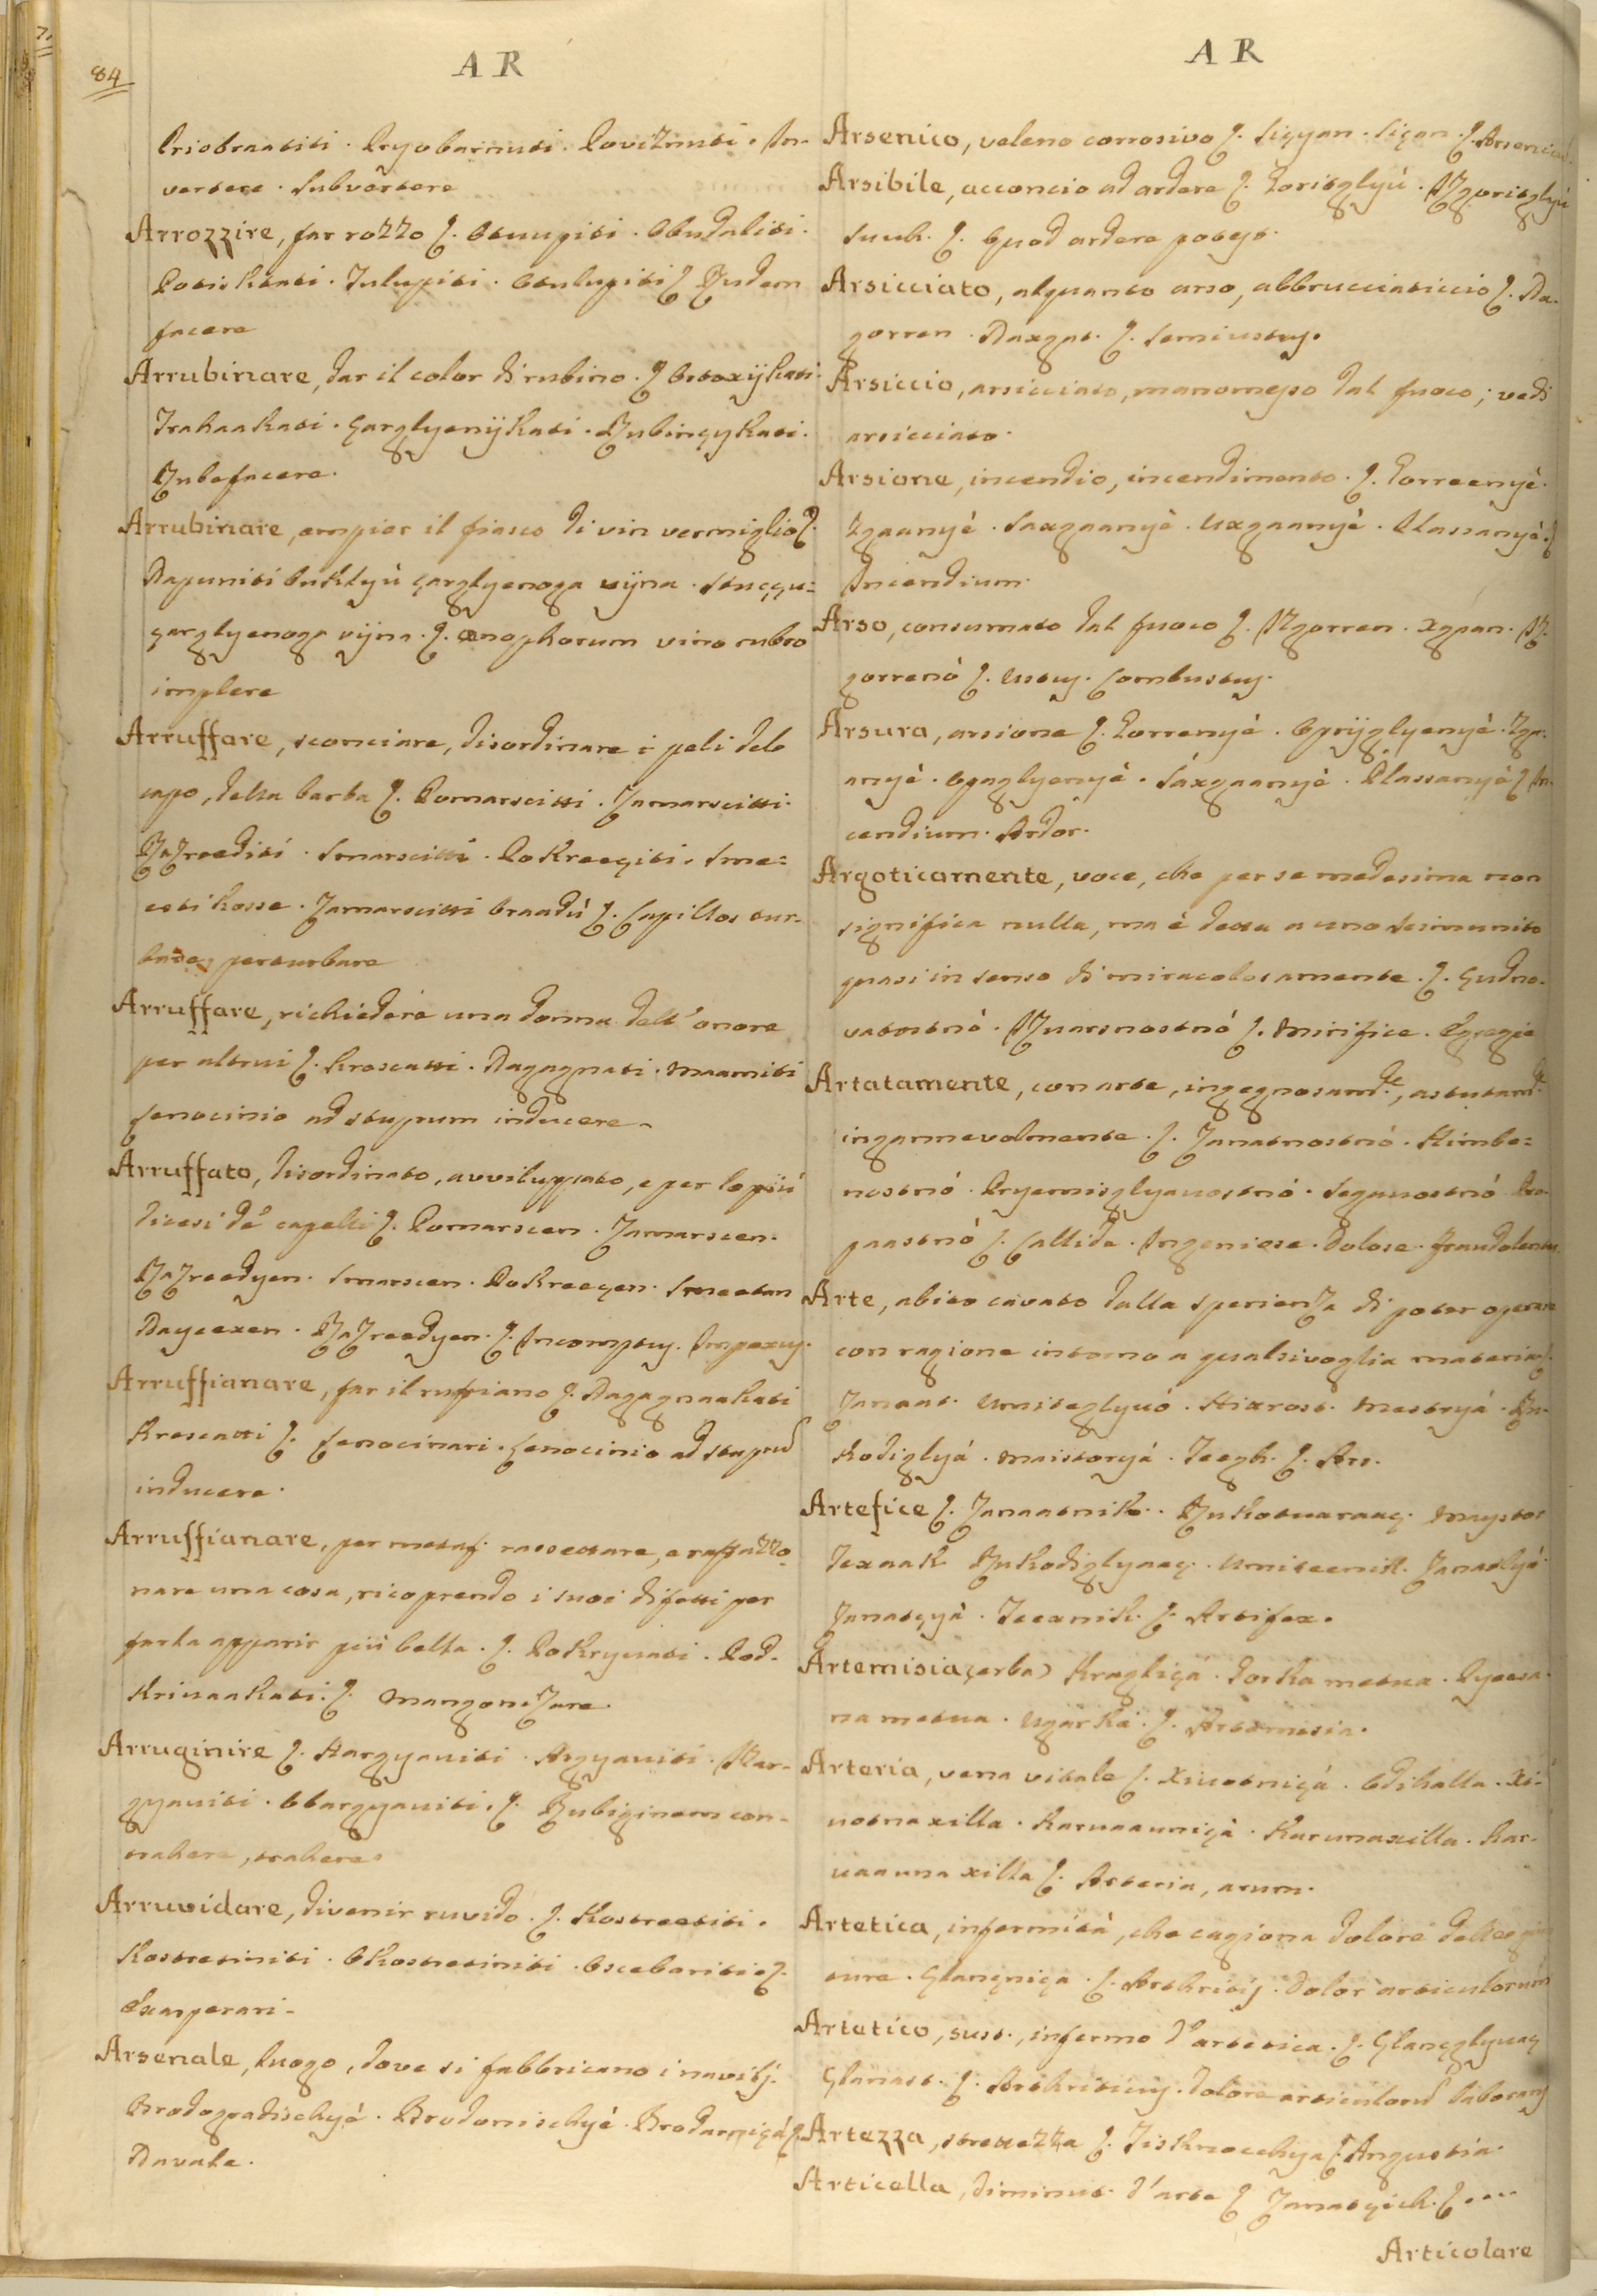 84
A R
Priobraatiti . Pryobarnuti . Povitnuti . In-
vertere . Subvertere
Arrozzire, far rozzo ʃ. Otuupiti . Obudaliti .
Potisktati . Tulupiti . Otulupiti ʃ Rudem
facere
Arrubinare, dar il color di rubino . ʃ
Trahaakati . çarglyenijkati . Rubinçykati .
Rubefacere .
Arrubinare, empier il fiasco di vin vermiglio ʃ.
Napuniti buklyù çarglyenoga vijna . stuççu=
çarglyenoga vijna . ʃ. œnophorum vino rubro
implere
Arruffare, sconciare, disordinare i peli del
capo, della barba ʃ. Pomarscitti . Zamarscitti .
Razreediti . Smarscitti . Pokreeçiti . Sme=
esti kosse . Zamarscitti braadù ʃ. Capillos tur-
bare, perturbare
Arruffare, richiedere una donna dell' onore
per altrui ʃ. Kroscatti . Nagagnati . Maamiti
Lenocinio ad stuprum inducere .
Arruffato, disordinato, avviluppato, e per lo più
dicesi de' capelli ʃ. Pomarscen . Zamarscen .
Razreedyen . Smarscen . Pokreeçen . Smeetan
Nayeexen . Razreedyen . ʃ. Incomptus . Impexus .
Arruffianare, far il ruffiano ʃ. Nagagnaakati
Kroscatti ʃ. Lenocinari . Lenocinio ad stupru
inducere .
Arruffianare, per metaf. rassettare, e raffazzo-
nare una cosa, ricoprendo i suoi difetti per
farla apparir più bella . ʃ. Pokryuati . Pod-
kriuaakati . ʃ. Mangonizare .
Arruginire ʃ. Hargyauiti . Argyauiti . Nar-
gyauiti . Obargyauiti . ʃ. Rubiginem con-
trahere, trahere .
Arruvidare, divenir ruvido . ʃ. Kostreetiti .
Kostretiniti . Okostretiniti . Oscebariti . ʃ.
Exasperari .
Arsenale, luogo, dove si fabbricano i navilj .
Brodogradischyè . Brodomischyè . Brodarniçà ʃ.
Navale .
A R
Arsenico, veleno corrosivo ʃ. Siçyan . Siçan . ʃ. Arsenicu
Arsibile, acconcio ad ardere ʃ. Gorisglyù . Izgorisglyù
suuh . ʃ. Quod ardere potest .
Arsicciato, alquanto arso, abbrucciaticcio ʃ. Na-
gorren . Naxgat . ʃ. Semiustus .
Arsiccio, arsicciato, manomesso dal fuoco ; vedi
arsicciato .
Arsione, incendio, incendimento . ʃ. Gorreenyè .
Zgaanyè . Saxgaanyè . Uxgaanyè . Plassanyè . ʃ
Incendium .
Arso, consumato dal fuoco ʃ. Izgorren . Xgaan . Iz-
gorrenò ʃ. Ustus . Combustus .
Arsura, arsione ʃ. Gorrenyè . Oprijglyenyè . Zga-
anyè . Opaglyenyè . Saxgaanyè . Plassanyè ʃ In-
cendium . Ardor .
Argoticamente, voce, che per se medesima non
significa nulla, ma è detta a uno scimunito
quasi in senso di miracolosamente . ʃ. çudno-
vatostnò . Izuarsnostnò ʃ. Mirifice . Egregie
Artatamente, con arte, ingegnosamte, astutamte
ingannevolmente . ʃ. Zanatnostnò . Himbe=
nostnò . Pryemisglyauostnò . Segauostnò .
paastnò ʃ. Callide . Ingeniose . Dolose . Fraudolenter
Arte, abito cavato dalla sperienza di poter operare
con ragione intorno a qualsivoglia materia ʃ.
Zanaat . Umiteglyuò . Hitrost . Mestryà . Ru-
kodiglyà . Maistoryà . Teegh . ʃ. Ars .
Artefice ʃ. Zanaatnik . Rukotuaraaç . Maystor
Texaak Rukodiglynaaç . Umiteenik . Zanadlyà
Zanatçyà . Teexnik . ʃ. Artifex .
Artemisia (erba) Kragliça . Gorka metua . Dyeesa-
na metua . Ugarka . ʃ. Artemisia .
Arteria, vena vitale ʃ. Xiuotniçà . Odihalla . Xi-
uotna xilla . Karuaauniçà . Karuna xilla . Kar-
uaauna xilla ʃ. Arteria, arum .
Artetica, infermità, che cagiona dolore delle giun
ture . Glançniça . ʃ. Arthritis . Dolor articulorum
Artetico, sust., infermo d'artetica . ʃ. Glançglyuaç
Glanast . ʃ. Arthriticus . Dolore articuloru laborans
Artezza, strettezza ʃ. Tisknocchya ʃ. Angustia .
Articella, diminut. d'arte ʃ Zanatçich . ʃ ....
Articolare